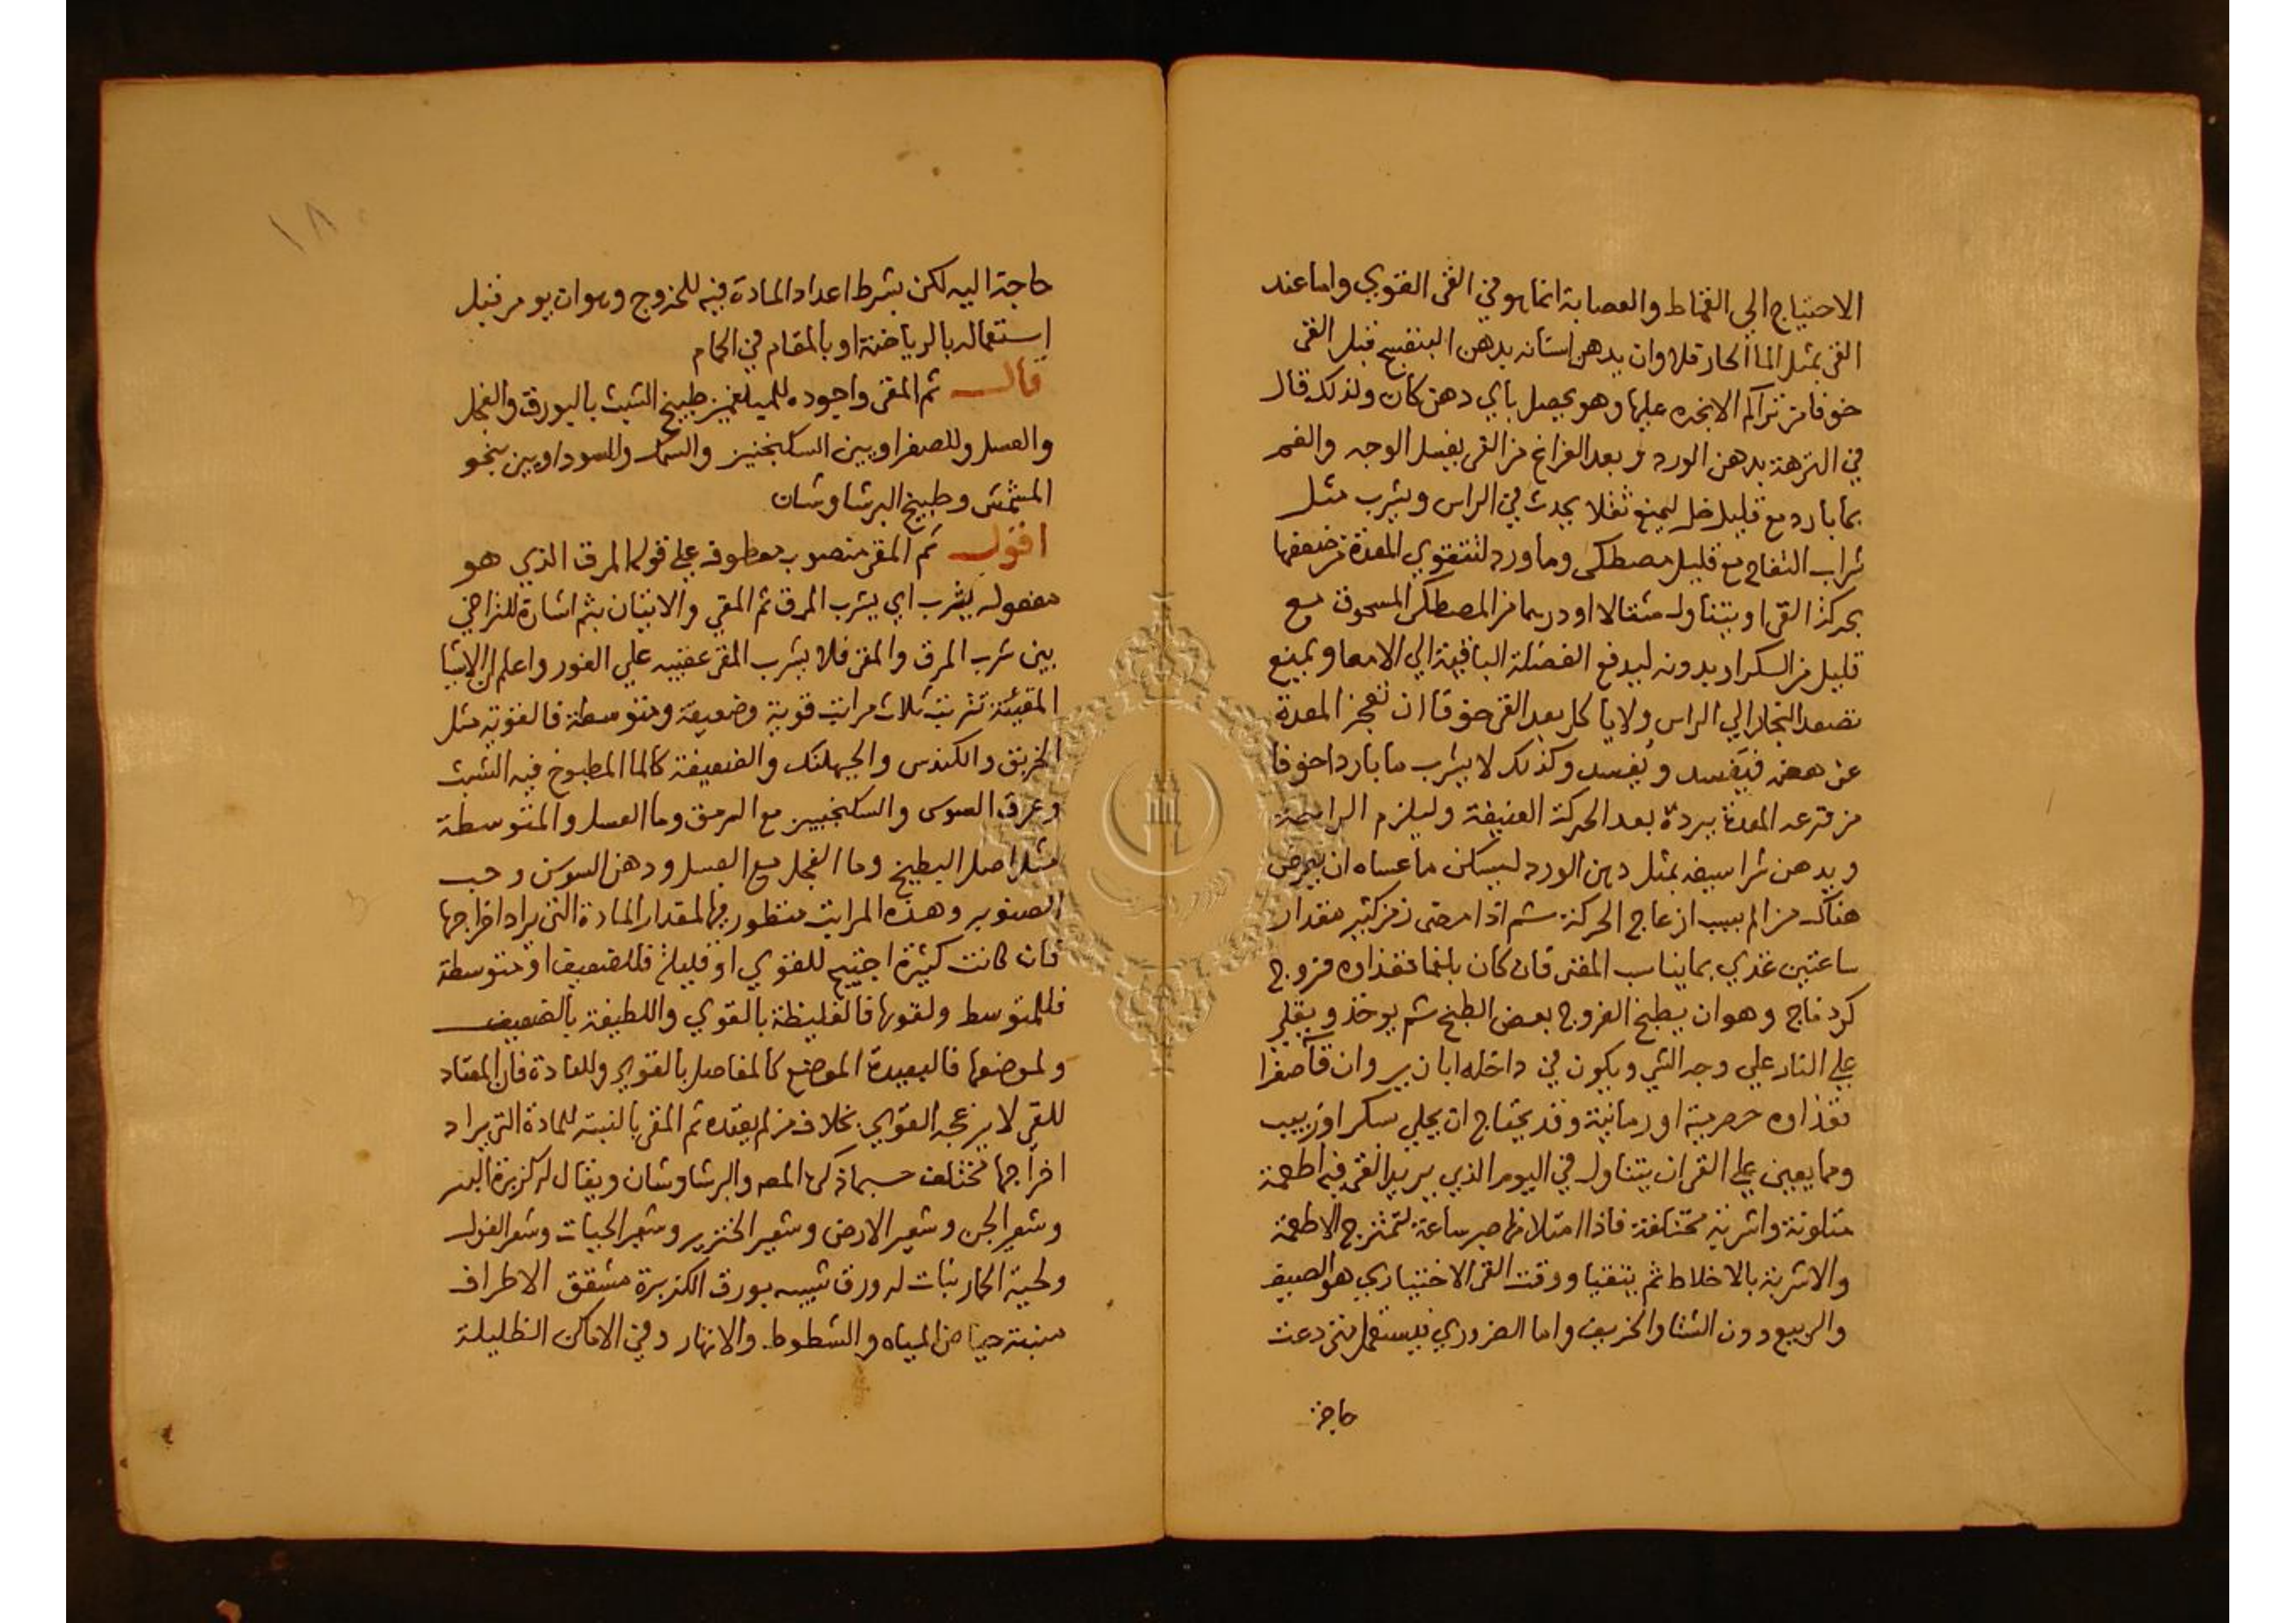 الاحتياج الي القماط والعصابة انما هو في القي القوي واما عند
القي بمثل الما الحار فلا وان يدهن اسنانه بدهن البنفسج قبل القي
خوفا من تراكم الابخره عليها وهو يحصل باي دهن كان ولذلك قال
في النزهة بدهن الورد و بعد الفراغ من القي يغسل الوجه والفم
بما بارد مع قليل خل ليمنع ثقلا يحدث في الراس ويشرب مثل
شراب التفاح مع قليل مصطكي وما ورد لتتقوي المعدة من ضعفها
بحركة القي او يتناول مثقالا او درهما من المصطكي المسحوق مع
قليل من السكر او بدونه ليدفع الفضلة الباقية الي الامعا ويمنع
تصعد البخار الي الراس ولا ياكل بعد القي خوفا ان تعجز المعدة
عن هضمه فيفسد ويُفسد وكذلك لا يشرب ما باردا خوفا
من قرعه المعدة ببرده بعد الحركة العنيفة وليلزم الراحة
ويدهن شراسيفه بمثل دهن الورد ليسكن ما عساه ان يعرض
هناك من الم بسبب ازعاج الحركة ثم اذا مضى زمن كثير مقدار
ساعتين غذي بما يناسب المقي فان كان بلغما فغذاوه فروج
كردناج وهو ان يطبخ الفروج بعض الطبخ ثم يوخذ ويقلي
علي النار علي وجه الشي ويكون في داخله ابازير وان قاَ صفرا
فغذاوه حصرمية او رمانية وقد يحتاج ان يحلي بسكر او زبيب
ومما يعين علي القي ان يتناول في اليوم الذي يريد القي فيه اطعمة
متلونة واشربة مختلفة فاذا امتلا منها صبر ساعة لتمتزج الاطعمة
والاشربة بالاخلاط ثم يتقيا ووقت القي الاختياري هو الصيف
والربيع دون الشتا والخريف واما الضروري فيستعمل متي دعت
حاجة
١٨
حاجة اليه لكن بشرط اعداد المادة فيه للخروج وهو ان يومر قبل
استعماله بالرياضة او بالمقام في الحمام
قال ثم المقي واجوده للمبلغمين طبيخ الشبث بالبورق والفجل
والعسل وللصفراويين السكنجبين والسمك وللسوداويين بنحو
المشمش وطبيخ البرشاوشان
اقول ثم المقي منصوب معطوف علي قوله المرق الذي هو
مفعول يشرب اي يشرب المرق ثم المقي والاتيان بثم اشارة للتراخي
بين شرب المرق والمقي فلا يشرب المقي عقبيه علي الفور واعلم ان الاشيا
المقيئة ترتبت ثلاث مراتب قوية وضعيفة ومتوسطة فالقوية مثل
الخربق والكندس والجبهلنك والضعيفة كالما المطبوخ فيه الشبث
وعرق السوس والسكنجبين مع المرق وما العسل والمتوسطة
مثل اصل البطيخ وما الفجل مع العسل ودهن السوسن وحب
الصنوبر وهذه المراتب منظور فيها لمقدار المادة التي يراد اخراجها
فان كانت كثيرة احتيج للقوي او قليلة فللضعيف او متوسطة
فللمتوسط ولقوتها فالغليظة بالقوي واللطيفة بالضعيف
ولموضعها فالبعيدة الموضع كالمفاصل بالقوي وللعادة فان المعتاد
للقي لا يزعجه القوي بخلاف من لم يعتده ثم المقي بالنسبة للمادة التي يراد
اخراجها تختلف حسبما ذكره المص والبرشاوشان ويقال له كزبرة البير
وشعر الجن وشعر الارض وشعر الخنزير وشعر الحيات وشعر الغول
ولحية الحمار نبات له ورق شبيه بورق الكزبرة مشقق الاطراف
منبته حياض المياه والشطوط والانهار وفي الاماكن الظليلة